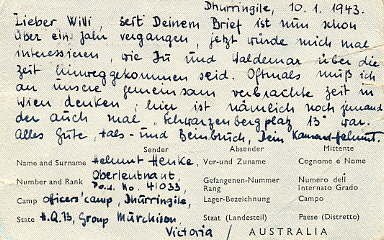 Dhurringile, 10.1.1943.
Lieber Willi, seit Deinem Brief ist nun schon
über ein Jahr vergangen, jetzt würde mich mal
interessieren, wie Du und Waldemar über die
Zeit hinweggekommen seid. Oftmals muß ich
an unsere gemeinsam verbrachte Zeit in
Wien denken, hier ist nämlich noch jemand
der auch mal "Schwarzenbergplatz 13" war.
Alles Gute, Hals- und Beinbruch, Dein Kamerad Helmut.
Sender Absender Mittente
Name and Surname Helmut Henke, Vor-und Zuname Cognome e Nome
Number and Rank Oberleutnant, P.o.W. No. 41033, Gefangenen-Nummer Rang Numero dell Internato Grado
Camp Officers' camp, Dhurringile, Lager-Bezeichnung Campo
State H.Q. 13, Group Murchison, Staat (Landesteil) Paese (Distretto)
Victoria / AUSTRALIA